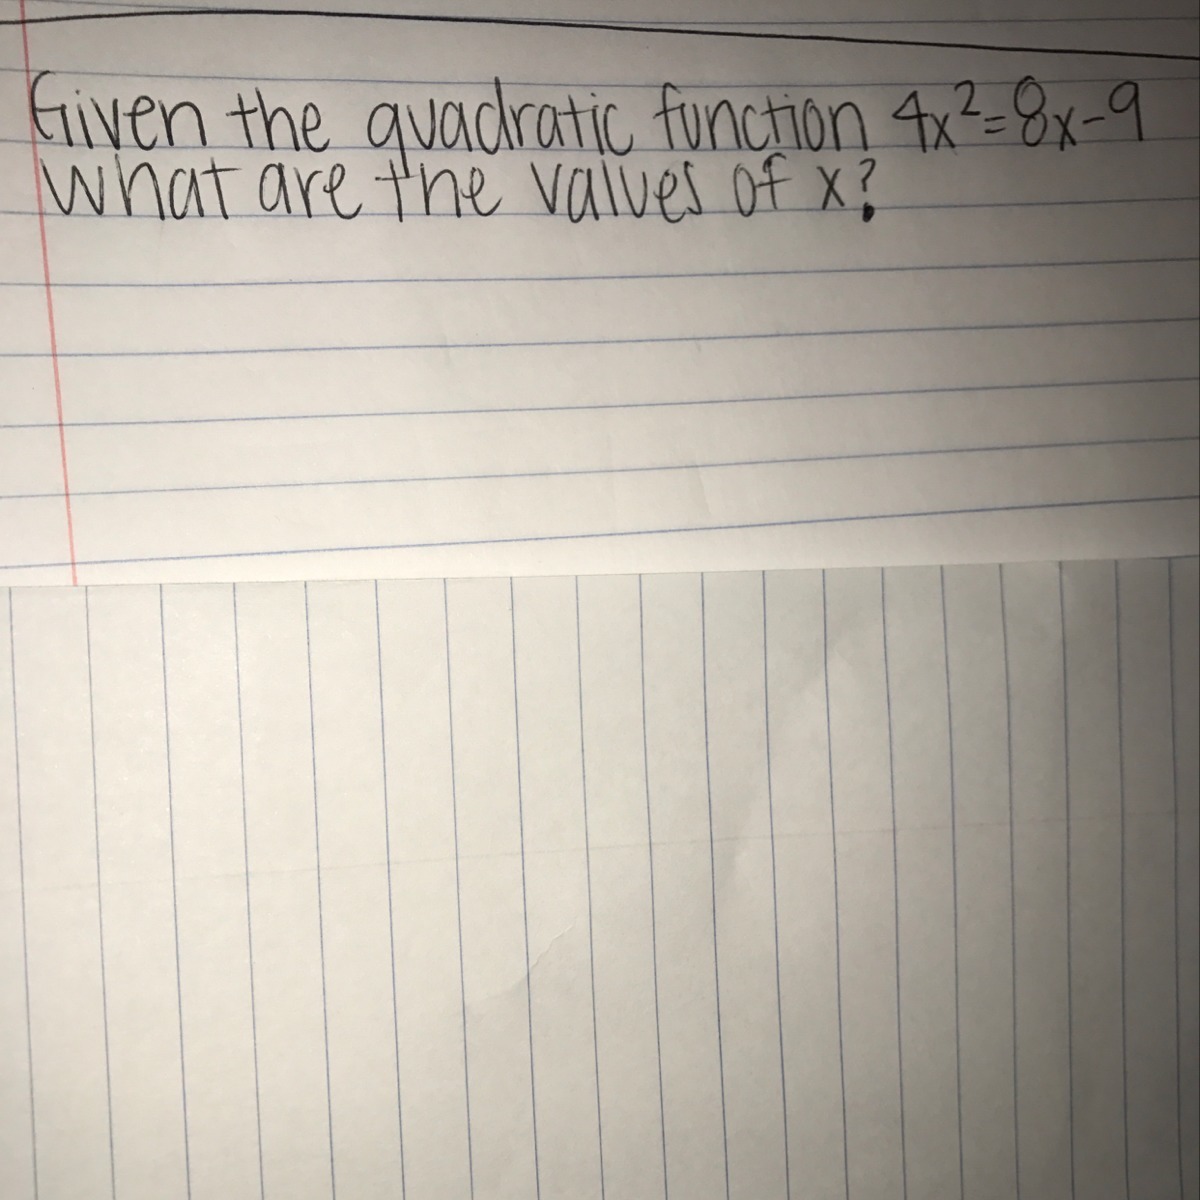 Given the quadratic function 4x²=8x-9
What are the values of x?